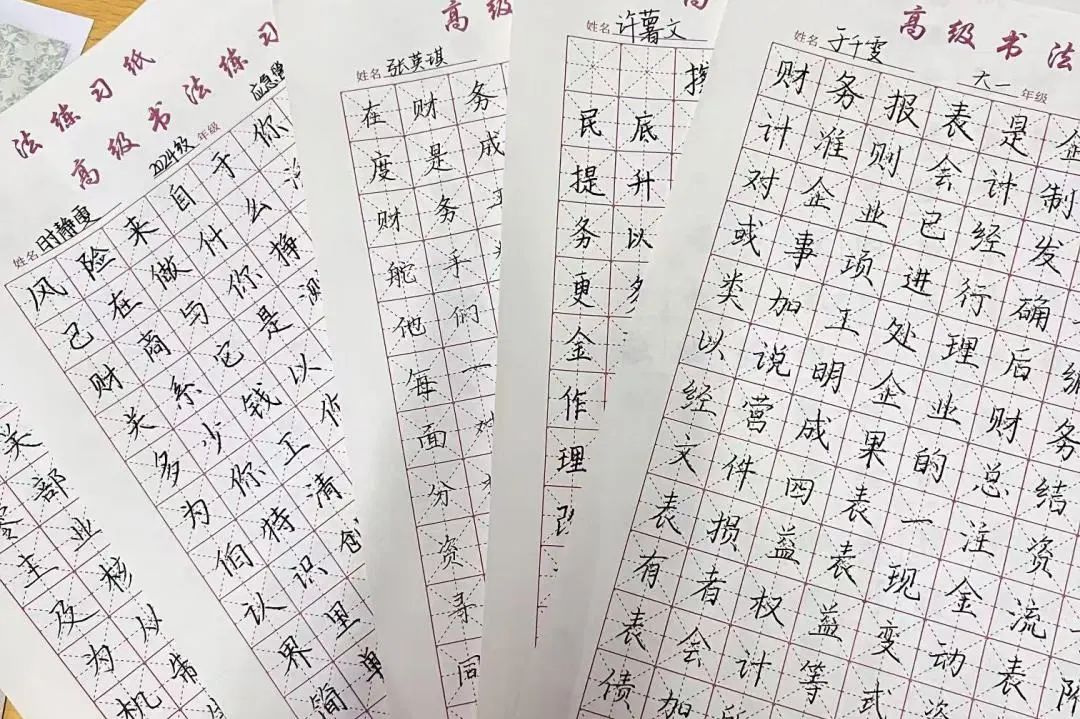 法练习纸
高级书法练习
2024级 年级
姓名 时静雯
风险来自于你
己在做什么
财商与你挣
关系它是测
多少钱以
为你工作
伯特清
认识
界里
简单
关
部
主业
及核
为以
机
高级
姓名 张英琪
在财务
度是成
财务
舵手
他们
每一
面对
分
资
寻
同
高
姓名 许薯文
民底
提升
务以
更多
金
作
理
高级书法
姓名 于千雯 大一 年级
财务报表是企
计准则会计制
对企业已经发
或事项进行确
类加工处理后编
以说明企业财务
经营成果的总结
文件四表一注资
表损益表现金流
有者权益变动表
表会计等式资阶
债加所